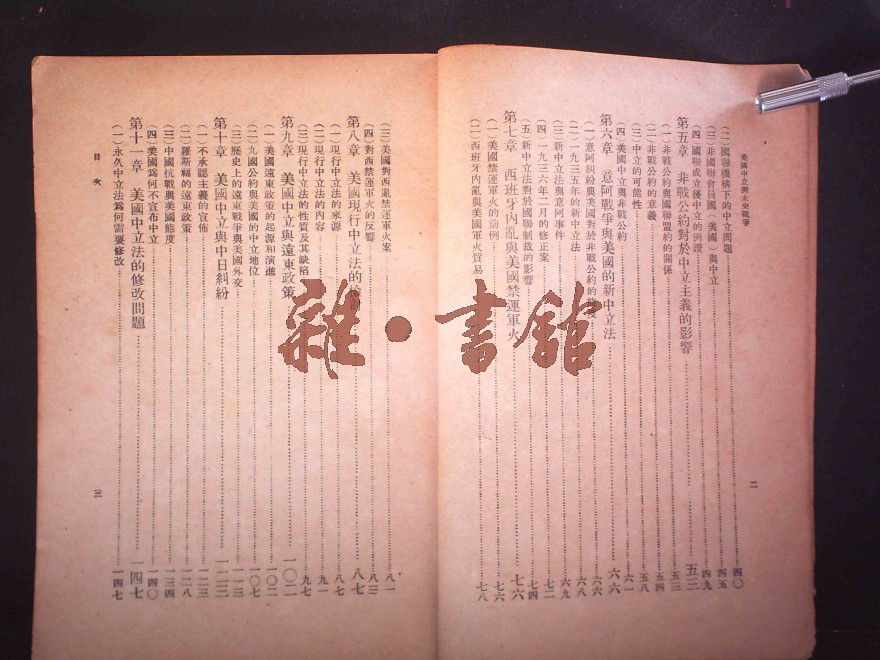 美國中立與未來戰爭
二
(二)國聯機構下的中立問題 四〇
(三)非國聯會員國(美國)與中立 四五
(四)國聯成立後中立的例證 四九
第五章 非戰公約對於中立主義的影響 五三
(一)非戰公約與國聯盟約的關係 五三
(二)非戰公約的意義 五四
(三)中立的可能性 五八
(四)美國中立與非戰公約 六一
第六章 意阿戰爭與美國的新中立法 六六
(一)意阿糾紛與美國對於非戰公約的 六六
(二)一九三五年的新中立法 六八
(三)新中立法與意阿事件 六九
(四)一九三六年二月的修正案 七二
(五)新中立法對於國聯制裁的影響 七四
第七章 西班牙內亂與美國禁運軍火 七六
(一)美國禁運軍火的前例 七六
(二)西班牙內亂與美國軍火貿易 七八
(三)美國對西亂禁運軍火案 八一
(四)對西禁運軍火的反響 八三
第八章 美國現行中立法的檢討 八七
(一)現行中立法的來源 八七
(二)現行中立法的內容 九一
(三)現行中立法的性質及其缺陷 九七
第九章 美國中立與遠東政策 一〇二
(一)美國遠東政策的起源和演進 一〇二
(二)九國公約與美國的中立地位 一〇七
(三)歷史上的遠東戰爭與美國外交 一一三
第十章 美國中立與中日糾紛 一二三
(一)不承認主義的宣佈 一二三
(二)羅斯福的遠東政策 一二八
(三)中國抗戰與美國態度 一三四
(四)美國為何不宣布中立 一四〇
第十一章 美國中立法的修改問題 一四七
(一)永久中立法為何需要修改 一四七
目次
三
雜·書館